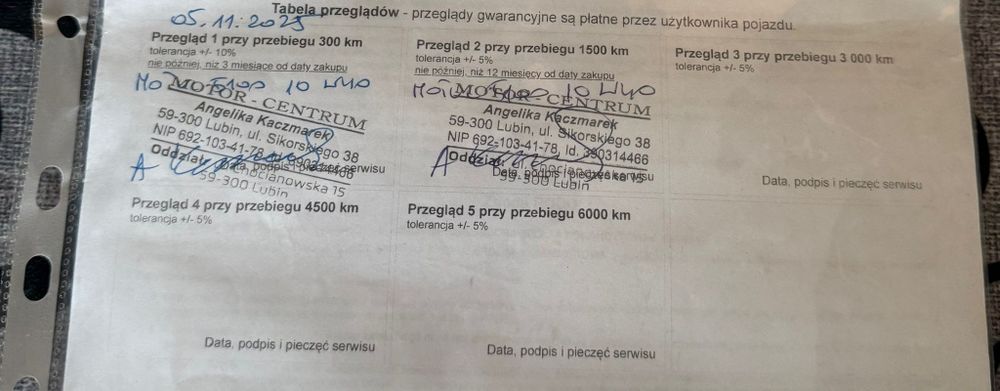 Tabela przeglądów - przeglądy gwarancyjne są płatne przez użytkownika pojazdu.
05.11.2025
Przegląd 1 przy przebiegu 300 km
tolerancja +/- 10%
nie później, niż 3 miesiące od daty zakupu
10 W40
MOTOR - CENTRUM
Angelika Kaczmarek
59-300 Lubin, ul. Sikorskiego 38
NIP 692-103-41-78
Oddział:
Data, podpis i pieczęć serwisu
59-300 Lubin
Przegląd 2 przy przebiegu 1500 km
tolerancja +/- 5%
nie później, niż 12 miesięcy od daty zakupu
10 W40
MOTOR - CENTRUM
Angelika Kaczmarek
59-300 Lubin, ul. Sikorskiego 38
NIP 692-103-41-78, Id. 390314466
Oddział:
Data, podpis i pieczęć serwisu
59-300 Lubin
Przegląd 3 przy przebiegu 3 000 km
tolerancja +/- 5%
Data, podpis i pieczęć serwisu
Przegląd 4 przy przebiegu 4500 km
tolerancja +/- 5%
Data, podpis i pieczęć serwisu
Przegląd 5 przy przebiegu 6000 km
tolerancja +/- 5%
Data, podpis i pieczęć serwisu